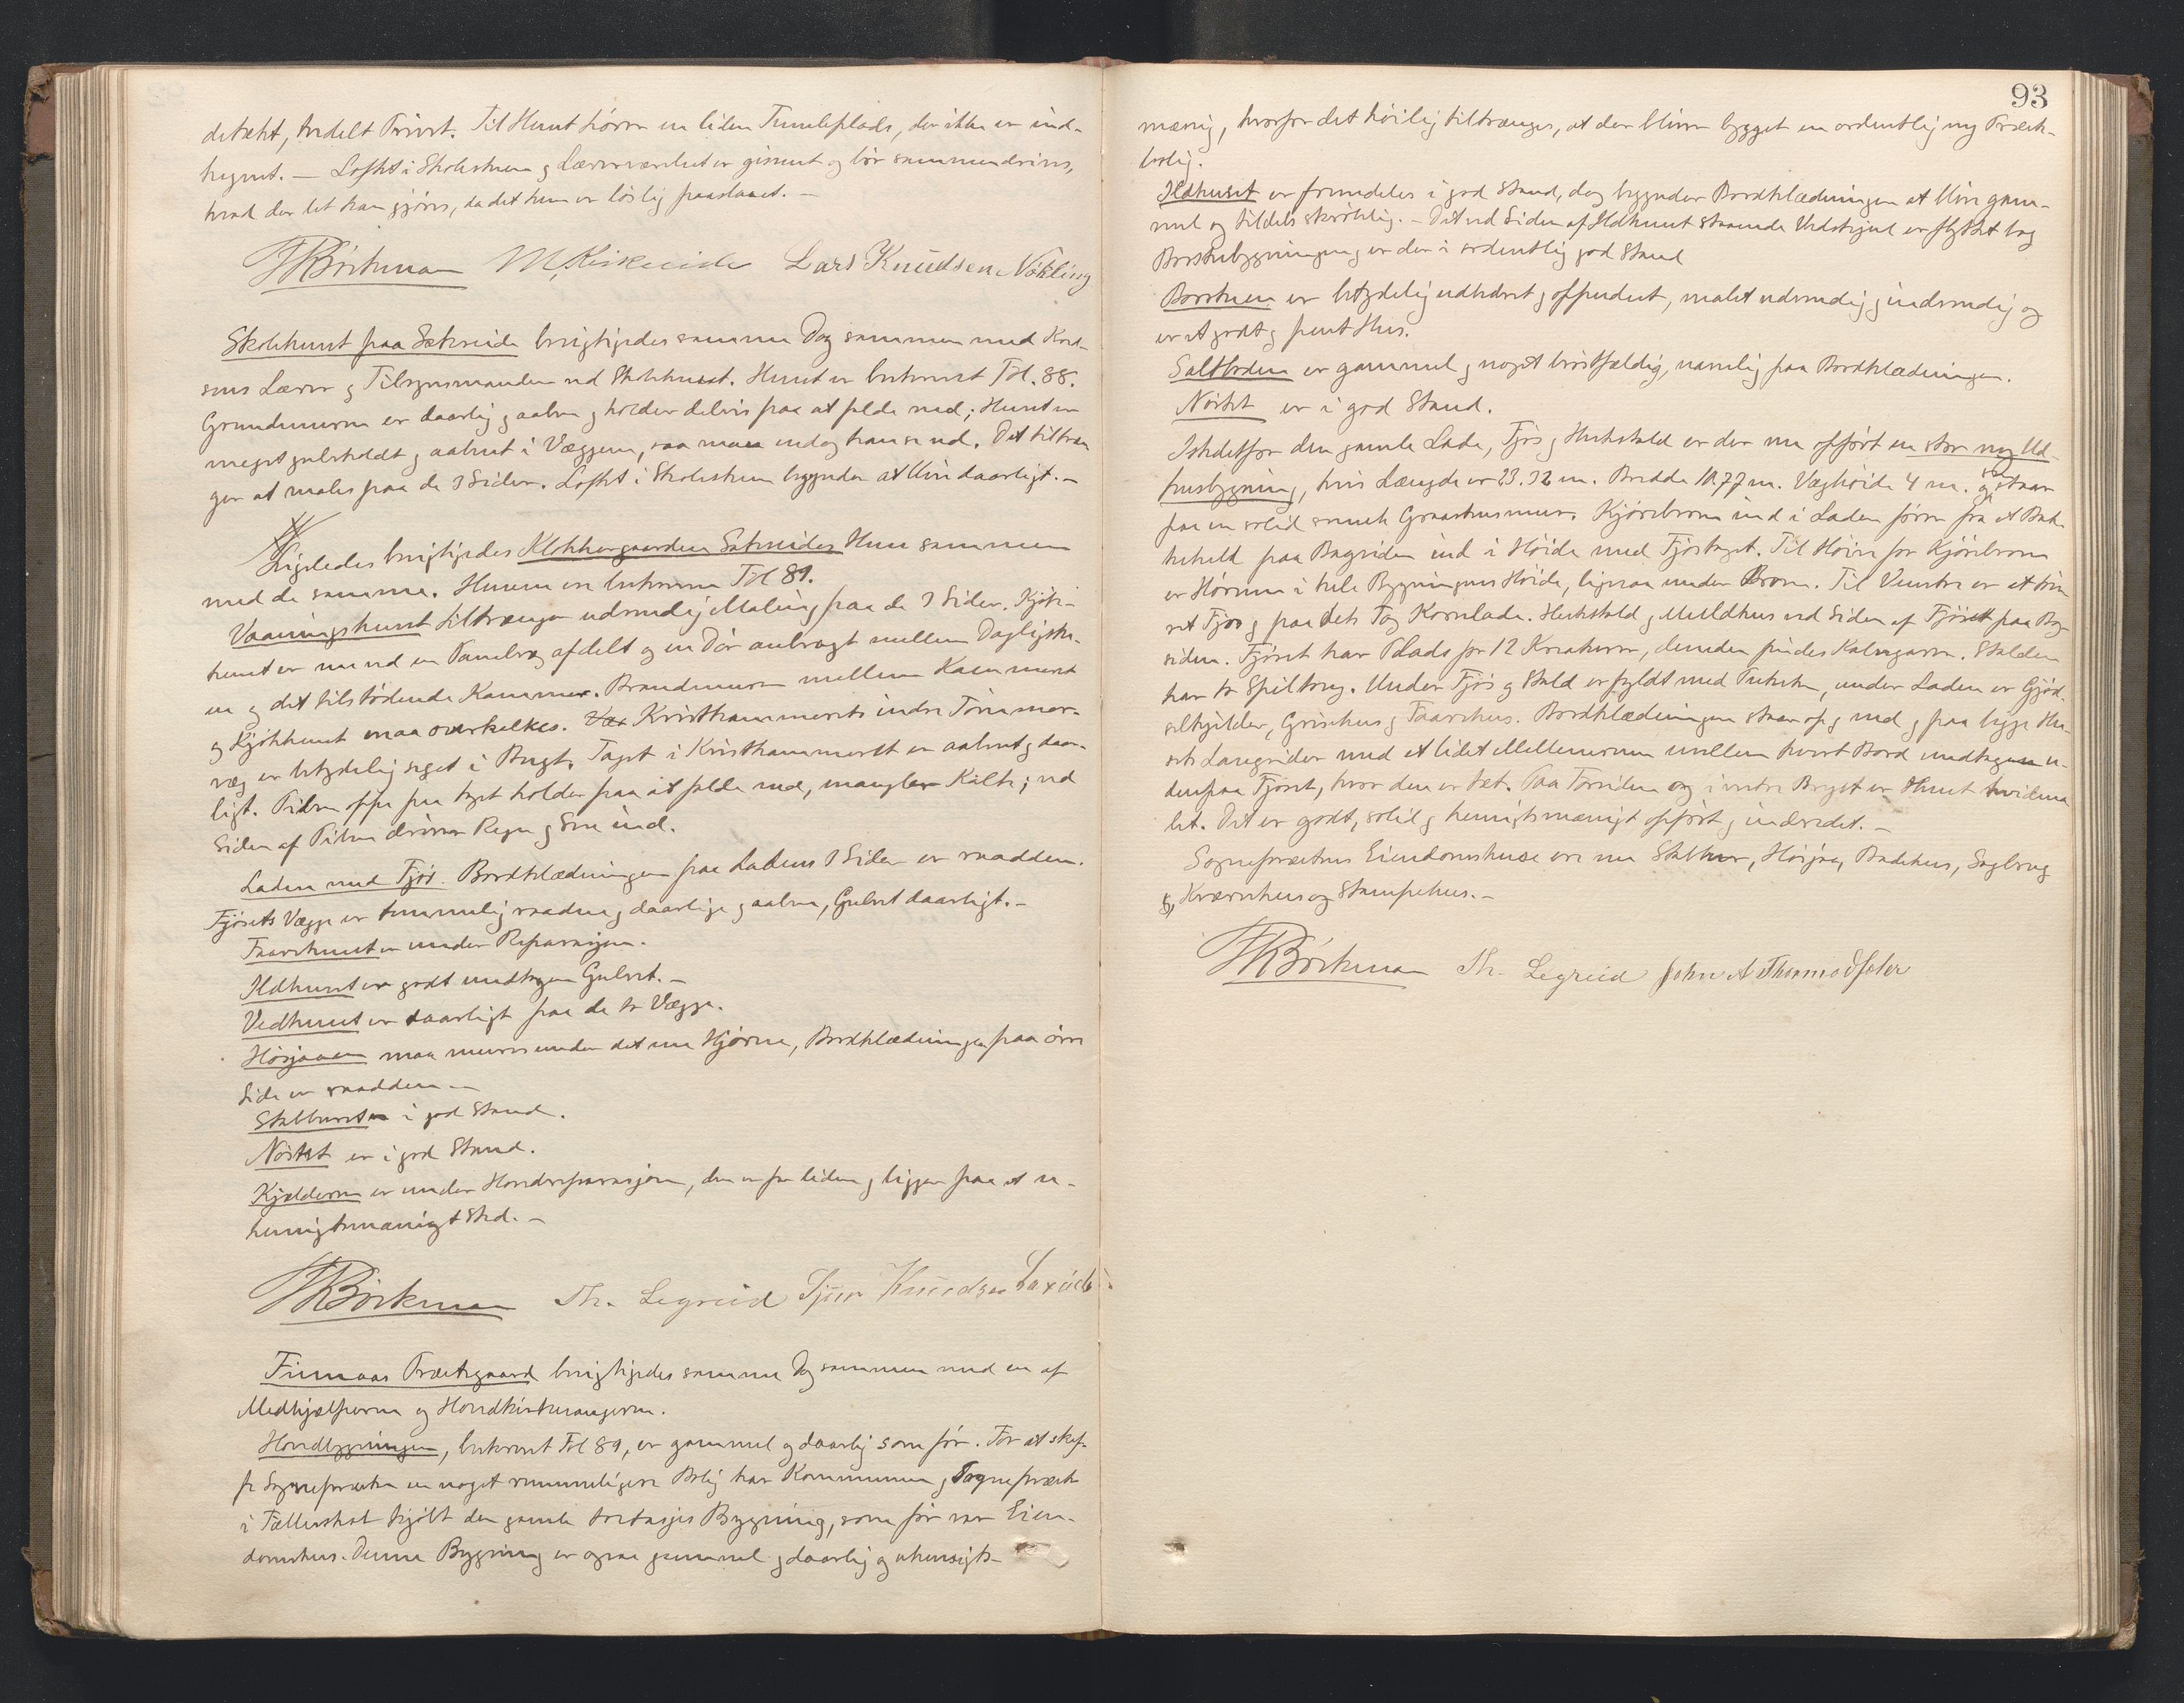 detækt, tredelt Privet. Til Huset hörer en liden Tumleplads, der ikke er ind-
hegnet. — Loftet i Skolestuen og Lærerværelset er gissent og bör sammendrives,
hvad der let kan gjöres, da det kun er löslig paaslaaet. —
Börkman M. Lars Knudsen Nökling
Skolehuset paa Sætveide besigtigedes samme Dag sammen med Kred-
sens Lærer og Tilsynsmanden ved Skolehuset. Huset er beskrevet Fol. 88.
Grundmuren er daarlig og aaben og holder delvis paa at falde ned; Huset er
meget gulvkoldt og aabent i Væggene, saa man endog kan se ud. Det tiltræn
ger at males paa de 3 Sider. Loftet i Skolestuen begynder at blive daarligt. —
Ligeledes besigtigedes Klokkergaarden Sætveides Huse sammen
med de samme. Husene ere beskrevne Fol 89.
Vaaningshuset tiltrænger udvendig Maling paa de 3 Sider. Kjök-
kenet er nu ved en Panelvæg afdelt og en Dör anbragt mellem Dagligstu-
en og det tilstödende Kammer. Brandmuren mellem Kammeret
og Kjökkenet maa overkalkes. Kvistkammerets indre Tömmer-
væg er betydelig seget i Bugt. Taget i Kvistkammeret er aabent og daar-
ligt. Piben oppe paa taget holder paa at falde ned, mangler Kalk; ved
Siden af Piben driver Regn og Sne ind.
Laden med Fjös. Bordklædningen paa Ladens 3 Sider er raadden.
Fjösets Vægge er temmelig raadne og daarlige og aabne, Gulvet daarligt. —
Faarehuset er under Reparasjon.
Ildhuset er godt undtagen Gulvet. —
Vedhuset er daarligt paa de to Vægge.
Höijaaen maa mures under det ene Hjörne, Bordklædningen paa övre
Side er raadden —
Stabburet er i god Stand.
Nöstet er i god Stand.
Kjælderen er under Hovedreparasjon, den er for liden og ligger paa et u-
hensigtsmæssigt Sted. —
Börkman Th. Legreid Sjur Knudsen
Finnaas Præstegaard besigtigedes samme Dag sammen med en af
Medhjælperne og Hovedkirkeværgerne.
Hovedbygningen, beskrevet Fol 89, er gammel og daarlig som för. For at skaf-
fe Sognepræsten en noget rummeligere Bolig har Kommunen og Sognepræsten
i Fællesskab kjöbt den gamle toetasjes Bygning, som för var Eien-
domshus. Denne Bygning er ogsaa gammel og daarlig og uhensigts-
93
mæssig, hvorfor det höilig tiltrænges, at der bliver bygget en ordentlig ny Præste-
bolig.
Ildhuset er fremdeles i god Stand, dog begynder Bordklædningen at blive gam-
mel og tildels skröbelig. — Det ved Siden af Ildhuset staaende Vedskjul er flyttet bag
Borstubygningen og er der i ordentlig god Stand
Borstuen er betydelig udbedret og oppudset, malet udvendig og indvendig og
er et godt og pent Hus.
Saltboden er gammel og noget bröstfældig, navnlig paa Bordklædningen.
Nöstet er i god Stand.
Istedetfor den gamle Lade, Fjös og Hestestald er der nu opfört en stor ny Ud-
husbygning, hvis Længde er 23.32 m. Bredde 10.77 m. Væghöide 4 m. og staar
paa en solid smuk Graastensmur. Kjörebroen ind i Laden förer fra et Bak-
kehæld paa Bagsiden ind i Höide med Fjöstaget. Til Höire for Kjörebroen
er Hörum i hele Bygningens Höide, ligesaa under Broen. Til Venstre er et töm-
ret Fjös og paa dets Tag Kornlade. Hestestald og Muldhus ved Siden af Fjöset paa Bag-
siden. Fjöset har Plads for 12 Kreaturer, desuden findes Kalvegarer. Stalden
har to Spiltoug. Under Fjös og Stald er fyldt med, under Laden er Gjöd-
selkjelder, Grisehus og Faarehus. Bordklædningen staar op og ned og paa begge Hu-
sets Langsider med et lidet Mellemrum mellem hvert Bord undtagen u-
denpaa Fjöset, hvor den er tæt. Paa Forsiden og i vestre Bryst er Huset hvidma-
let. Det er godt, solid og hensigtsmæssigt opfört og indredet. —
Sognepræstens Eiendomshuse ere nu Stabbur, Höijaa, Badehus, Sagbrug
Kværnhus og Stampehus. —
Börkman Th. Legreid John A Thormodsæter